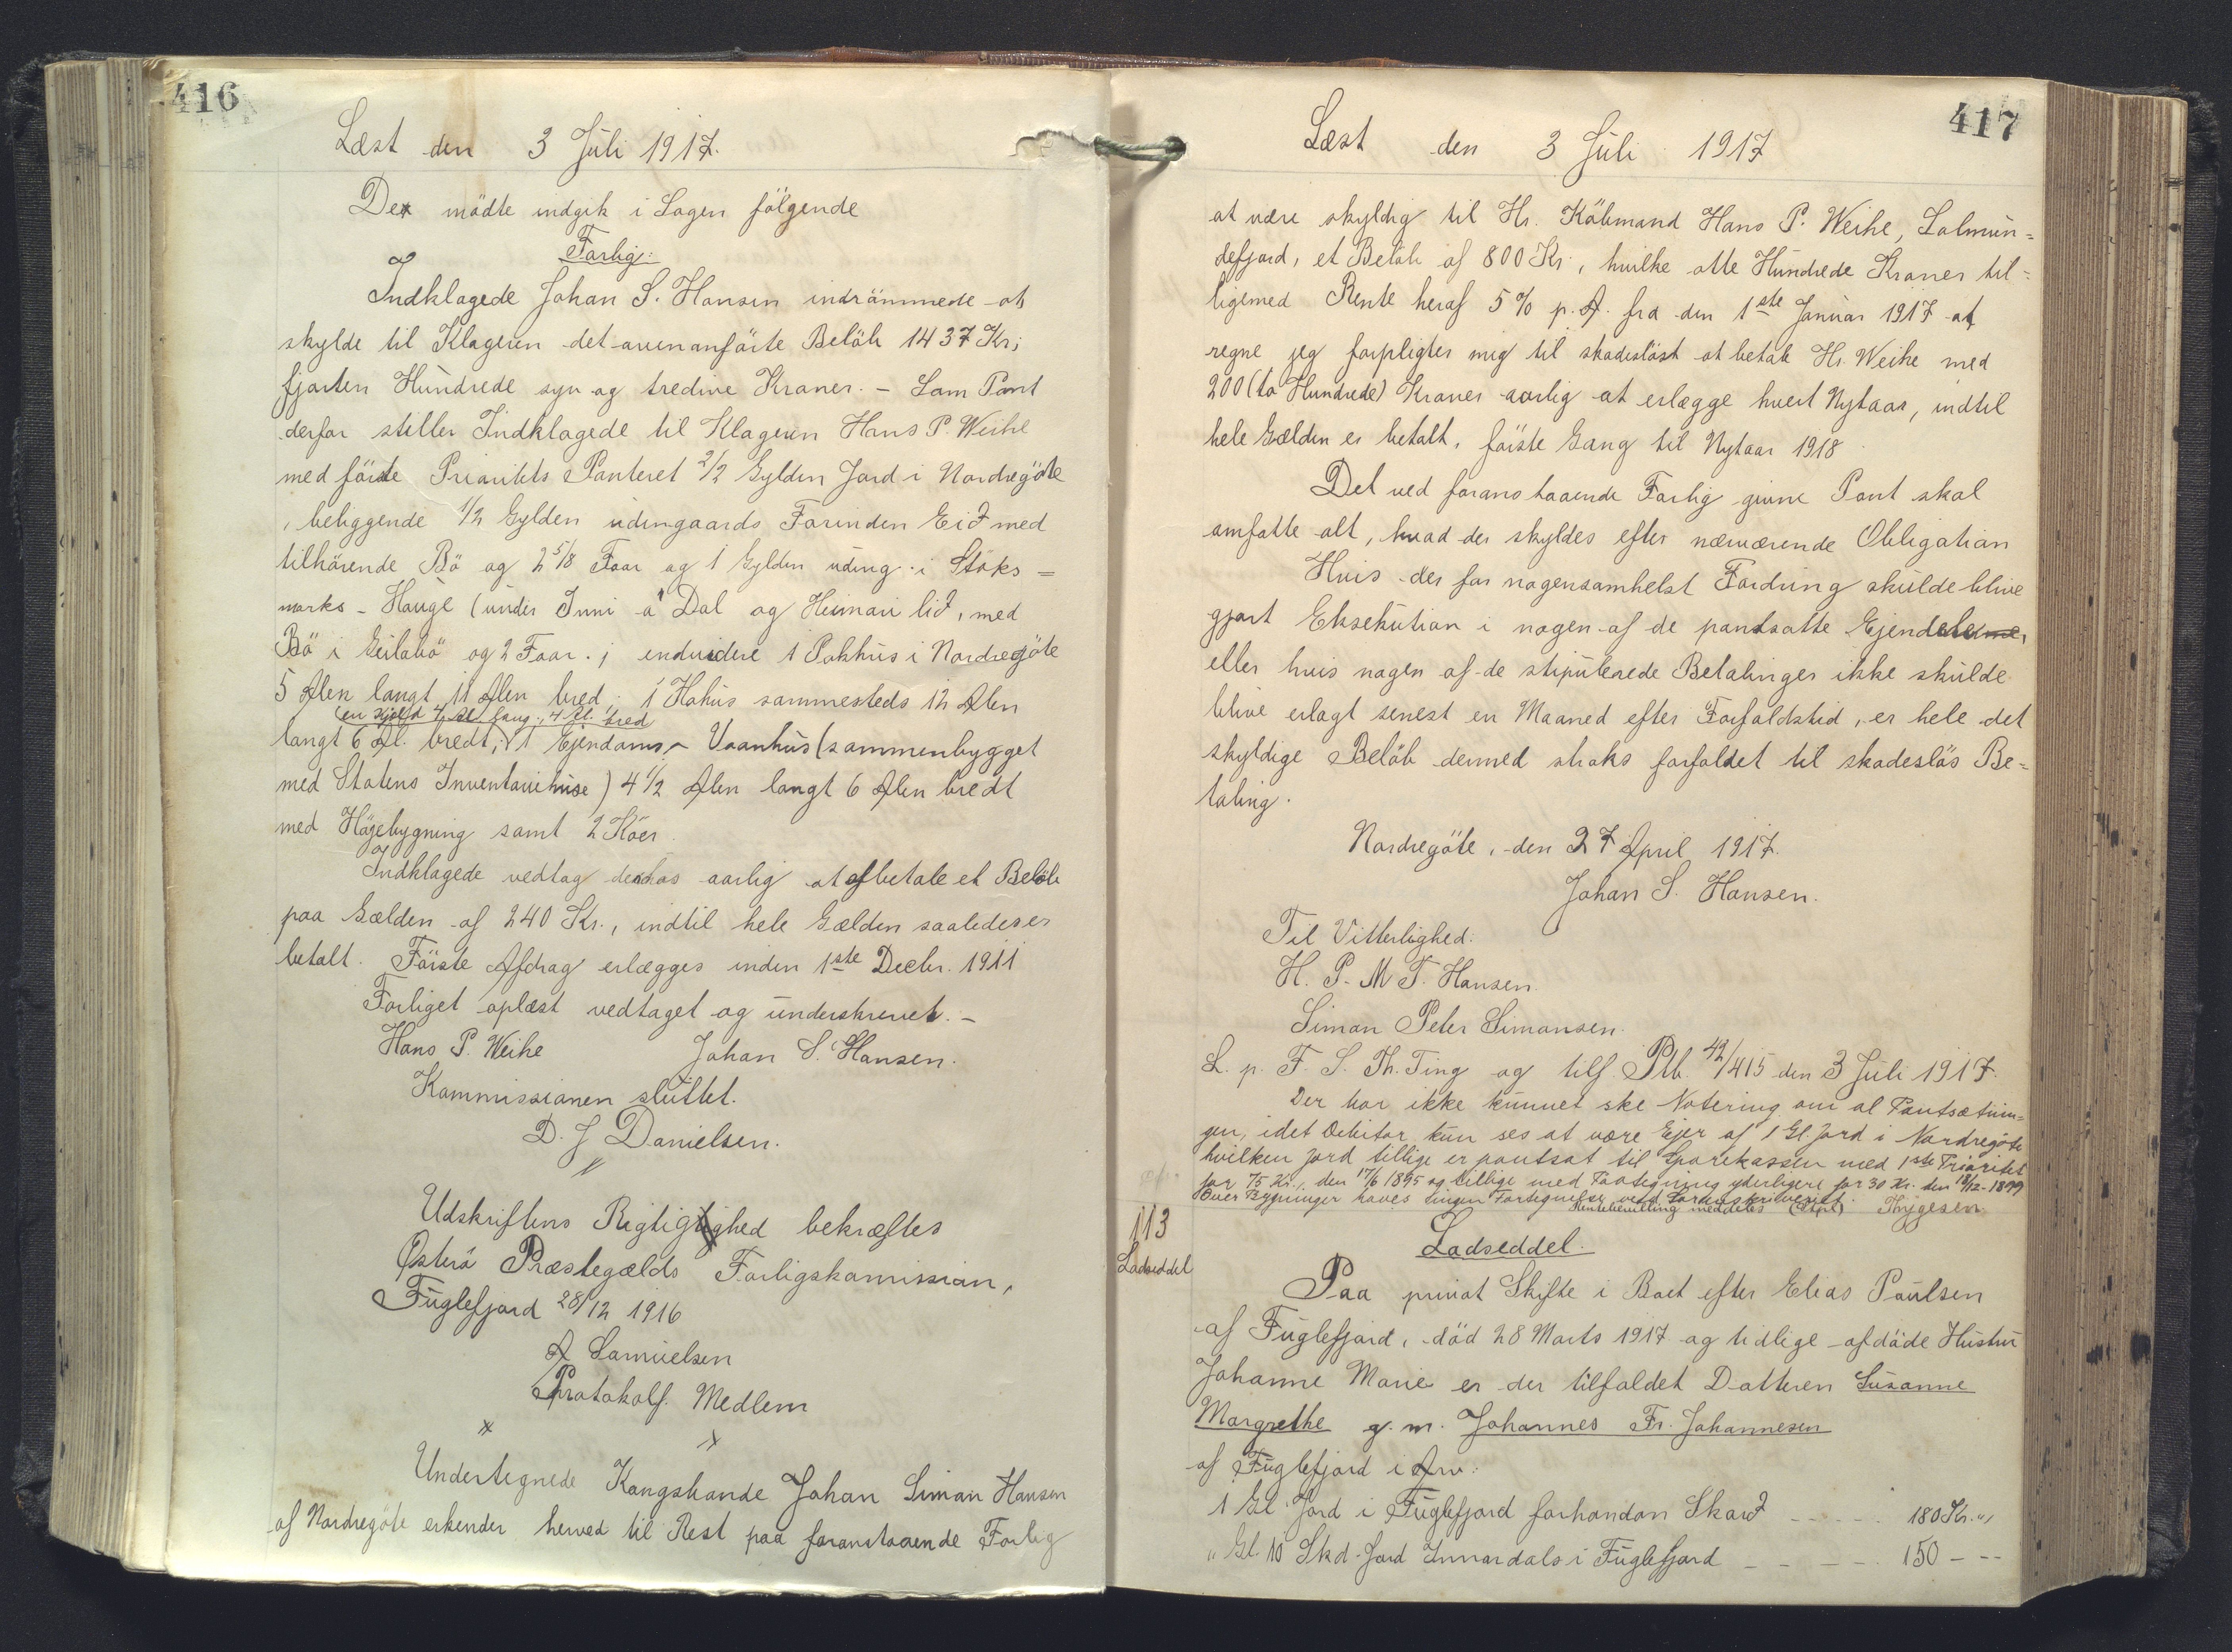 416
Læst den 3 Juli 1917.
De mödte indgik i Sagen fölgende
Forlig:
Indklagede Johan S. Hansen indrömmede at
skylde til Klageren det ovenanförte Belöb 1437 Kr;
fjorten Hundrede syv og tredive Kroner. – Som Pant
derfor stiller Indklagede til Klageren Hans P. Weihe
med förste Prioritets Panteret 2/2 Gylden Jord i Nordregöte
, beliggende 1/2 Gylden udengaards Forinden Eið med
tilhörende Bö og 2 5/8 Faar og 1 Gylden uding. i Stoks=
marks-Hauge (under Inni á Dal og Heimari lið, med
Bö i Geilabö og 2 Faar. ; endvidere 1 Pakhus i Nordregöte
5 Alen langt 11 Alen bred; 1 Hohus sammesteds 12 Alen
(en Kjold 4 Al lang, 4 Al. bred
langt 6 Al. bredt; 1 Ejendoms- Vaanhus (sammenbygget
med Statens Inventariehuse) 4 1/2 Alen langt 6 Alen bredt
med Höjebygning samt 2 Köer.
Indklagede vedtog derhos aarlig at afbetale et Belöb
paa Gælden af 240 Kr., indtil hele Gælden saaledes er
betalt. Förste Afdrag erlægges inden 1ste Decbr. 1911
Forliget oplæst vedtaget og underskrevet. –
Hans P. Weihe Johan S. Hansen.
Kommissionen sluttet.
D. J Danielsen.
Udskriftens Rigtighed bekræftes
Österö Præstegælds Forligskomission,
Fuglefjord 28/12 1916
A Samuelsen
Protokolf. Medlem
Undertegnede Kongsbonde Johan Simon Hansen
af Nordregöte erkender herved til Rest paa foranstaaende Forlig
417
Læst den 3 Juli 1917
at være skyldig til Hr. Köbmand Hans P. Weihe, Solmun=
defjord, et Belöb af 800 Kr., hvilke otte Hundrede Kroner til=
ligemed Rente heraf 5 % p. A. fra den 1ste Januar 1917 at
regne jeg forpligter mig til skadeslöst at betale Hr. Weihe med
200 (to Hundrede) Kroner aarlig at erlægge hvert Nytaar, indtil
hele Gælden er betalt, förste Gang til Nytaar 1918
Det ved foranstaaende Forlig givne Pant skal
omfatte alt, hvad der skyldes efter nærværende Obligation
Hvis der for nogensomhelst Fordring skulde blive
gjort Eksekution i nogen af de pantsatte Ejendele,
eller hvis nogen af de stipulerede Betalinger ikke skulde
blive erlagt senest en Maaned efter Forfaldstid, er hele det
skyldige Belöb dermed straks forfaldet til skadeslös Be=
taling.
Nordregöte, den 27 April 1917.
Johan S. Hansen.
Til Vitterlighed:
H. P. M T. Hansen.
Simon Peter Simonsen.
L. p. F. S. Th. Ting og tilf. Ptb. 42/415 den 3 Juli 1917.
Der har ikke kunnet ske Notering om al Pantsætnin=
gen, idet Debitor kun ses at være Ejer af 1 Gl. Jord i Nordregöte
hvilken Jord tillige er pantsat til Sparekassen med 1ste Prioritet
for 75 Kr., den 17/6 1895 og tillige med Paategning yderligere for 30 Kr. den 18/12-1899
Over Bygninger haves ingen Fortegnelse ved Sorenskriveriet.
Rentebevilling meddeles Thygesen
113
Ladseddel
Ladseddel.
Paa privat Skifte i Boet efter Elias Poulsen
af Fuglefjord, död 28 Marts 1917 og tidlige afdöde Hustru
Johanne Marie er der tilfaldet Datteren Susanne
Margrethe g. m. Johannes Fr. Johannesen
af Fuglefjord i Arv:
1 Gl Jord i Fuglefjord forhandan Skarð - - - - - 180 Kr. "
" Gl. 10 Skd. Jord Innardals i Fuglefjord - - - - - 150 - --